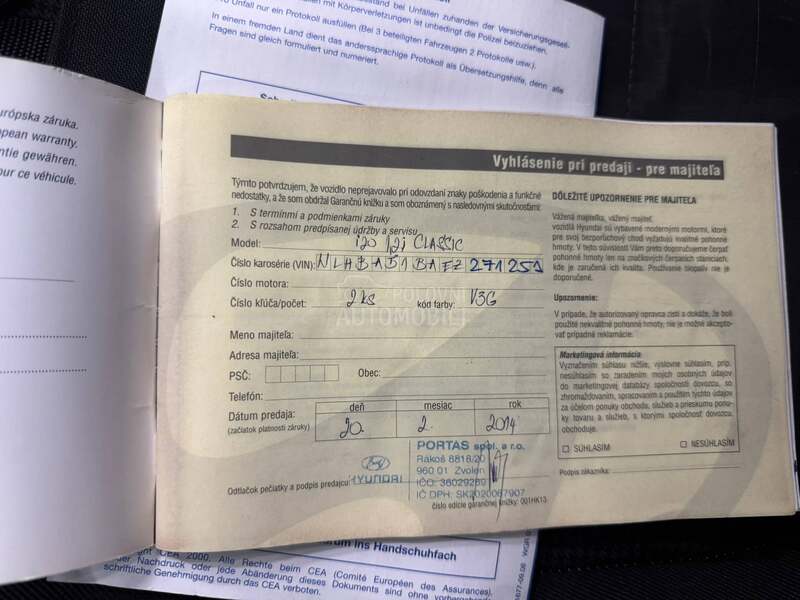 stand bei Unfällen zuhanden der Versicherungsgesell-
Unfall nur ein Protokoll ausfüllen (Bei 3 beteiligten Fahrzeugen 2 Protokolle usw.).
en mit Körperverletzungen ist unbedingt die Polizei beizuziehen.
In einem fremden Land dient das anderssprachige Protokoll als Übersetzungshilfe, denn alle
Fragen sind gleich formuliert und numeriert.
urópska záruka.
opean warranty.
ntie gewähren.
our ce véhicule.
Vyhlásenie pri predaji - pre majiteľa
Týmto potvrdzujem, že vozidlo neprejavovalo pri odovzdaní znaky poškodenia a funkčné
nedostatky, a že som obdržal Garančnú knižku a som oboznámený s nasledovnými skutočnosťami:
1. S termínmi a podmienkami záruky
2. S rozsahom predpísanej údržby a servisu
Model: i20 1,2i CLASSIC
Číslo karosérie (VIN): NLHBA51BAEZ271251
Číslo motora:
Číslo kľúča/počet: 2ks kód farby: V3G
POLOVNI
AUTOMOBILI
Meno majiteľa:
Adresa majiteľa:
PSČ: Obec:
Telefón:
Dátum predaja: deň mesiac rok
(začiatok platnosti záruky) 20. 2. 2014
HYUNDAI
PORTAS spol. s r.o.
Rákoš 8818/20
960 01 Zvolen
IČO: 36029289
IČ DPH: SK2020067907
Odtlačok pečiatky a podpis predajcu:
číslo edície garančnej knižky: 001HK13
DÔLEŽITÉ UPOZORNENIE PRE MAJITEĽA
Vážená majiteľka, vážený majiteľ,
vozidlá Hyundai sú vybavené modernými motormi, ktoré
pre svoj bezporuchový chod vyžadujú kvalitné pohonné
hmoty. V tejto súvislosti Vám preto doporučujeme čerpať
pohonné hmoty len na značkových čerpacích staniciach,
kde je zaručená ich kvalita. Používanie biopalív nie je
doporučené.
Upozornenie:
V prípade, že autorizovaný opravca zistí a dokáže, že boli
použité nekvalitné pohonné hmoty, nie je možné akceptovať
prípadné reklamácie.
Marketingová informácia
Vyznačením súhlasu nižšie, výslovne súhlasím, príp.
nesúhlasím so zaradením mojich osobných údajov
do marketingovej databázy spoločnosti dovozcu, so
zhromažďovaním, spracovaním a použitím týchto údajov
za účelom ponuky obchodu, služieb a prieskumu ponu-
ky tovaru a služieb, s ktorými spoločnosť dovozcu,
obchoduje.
SÚHLASÍM NESÚHLASÍM
Podpis zákazníka:
rum ins Handschuhfach
CEA 2000. Alle Rechte beim CEA (Comité Européen des Assurances).
Nachdruck oder jede Abänderung dieses Dokuments sind ohne vorhergehende
schriftliche Genehmigung durch das CEA verboten.